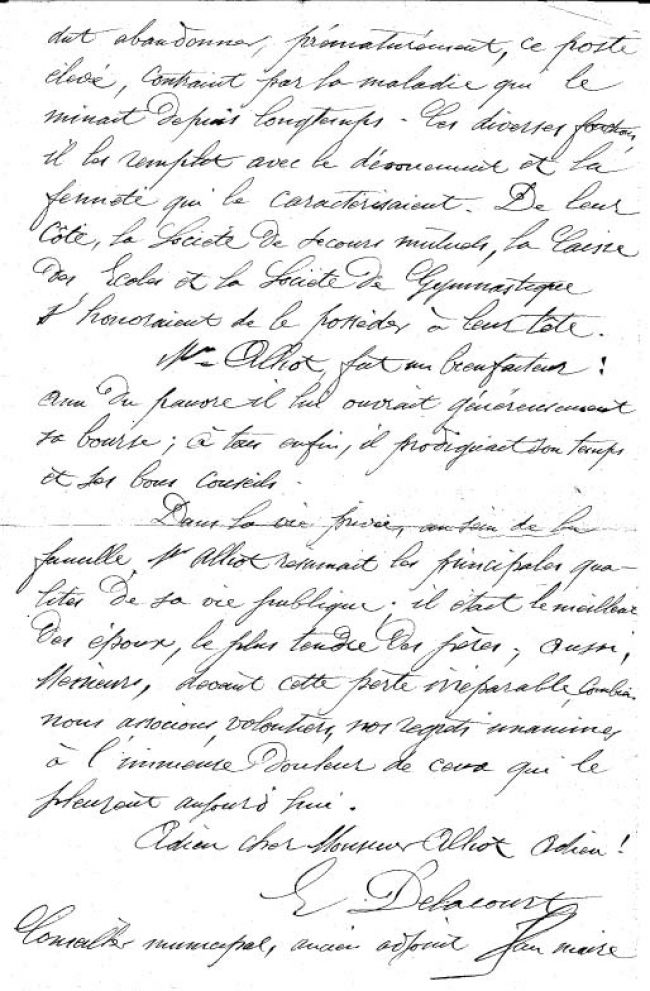 dut abandonner, prématurément, ce poste
élevé, contraint par la maladie qui le
minait depuis longtemps - Ces diverses fonctions,
il les remplit avec le dévouement et la
fermeté qui le caractérisaient. De leur
côté, la Société de secours mutuels, la Caisse
des Ecoles et la Société de Gymnastique
s'honoraient de le posséder à leur tête.
Mr Alliot, fut un bienfaiteur :
ami du pauvre il lui ouvrait généreusement
sa bourse ; à tous enfin, il prodiguait son temps
et ses bons conseils.
Dans la vie privée, au sein de la
famille, Mr Alliot résumait les principales qua-
lités de sa vie publique ; il était le meilleur
des époux, le plus tendre des pères ; aussi,
Messieurs, devant cette perte irréparable, combien
nous associons, volontiers, nos regrets unanimes
à l'immense douleur de ceux qui le
pleurent aujourd'hui.
Adieu cher Monsieur Alliot adieu !
E. Delacourt
Conseiller municipal, ancien adjoint au maire